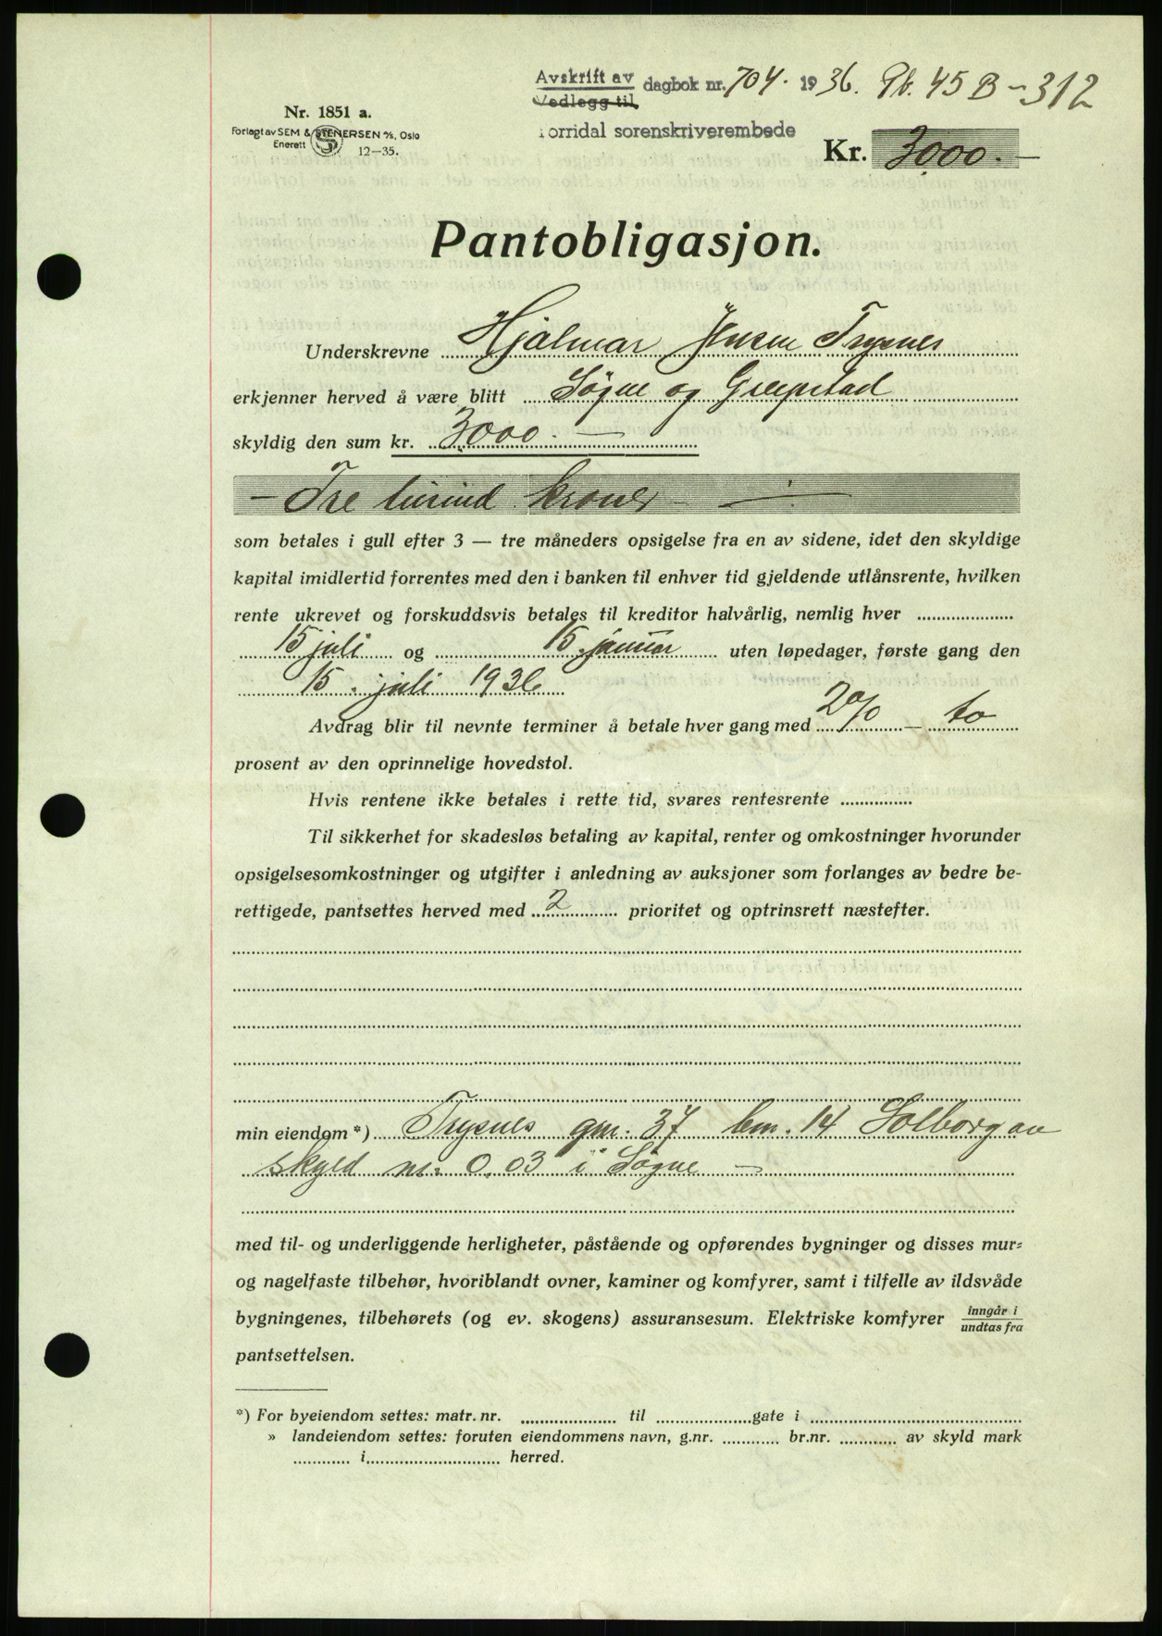 Avskrift av
Vedlegg til
dagbok nr. 704. 1936. Pb. 45 B - 312
Torridal sorenskriverembede
Nr. 1851 a.
Forlagt av SEM & STENERSEN A/S, Oslo
Enerett
12-35.
Kr. 3000. —
Pantobligasjon.
Underskrevne Hjalmar Jensen Trysnes
erkjenner herved å være blitt Søgne og Greipstad
skyldig den sum kr. 3000. —
— Tre tusind kroner —
som betales i gull efter 3 — tre måneders opsigelse fra en av sidene, idet den skyldige
kapital imidlertid forrentes med den i banken til enhver tid gjeldende utlånsrente, hvilken
rente ukrevet og forskuddsvis betales til kreditor halvårlig, nemlig hver
15 juli og 15. januar uten løpedager, første gang den
15. juli 1936
Avdrag blir til nevnte terminer å betale hver gang med 2% — to
prosent av den oprinnelige hovedstol.
Hvis rentene ikke betales i rette tid, svares rentesrente
Til sikkerhet for skadesløs betaling av kapital, renter og omkostninger hvorunder
opsigelsesomkostninger og utgifter i anledning av auksjoner som forlanges av bedre be-
rettigede, pantsettes herved med 2 prioritet og optrinsrett næstefter.
min eiendom *) Trysnes gnr. 37 bnr. 14 Solborg av
skyld m. 0,03 i Søgne —
med til- og underliggende herligheter, påstående og opførendes bygninger og disses mur-
og nagelfaste tilbehør, hvoriblandt ovner, kaminer og komfyrer, samt i tilfelle av ildsvåde
bygningenes, tilbehørets (og ev. skogens) assuransesum. Elektriske komfyrer inngår i
undtas fra
pantsettelsen.
*) For byeiendom settes: matr. nr. til gate i
» landeiendom settes: foruten eiendommens navn, g.nr. br.nr. av skyld mark
i herred.